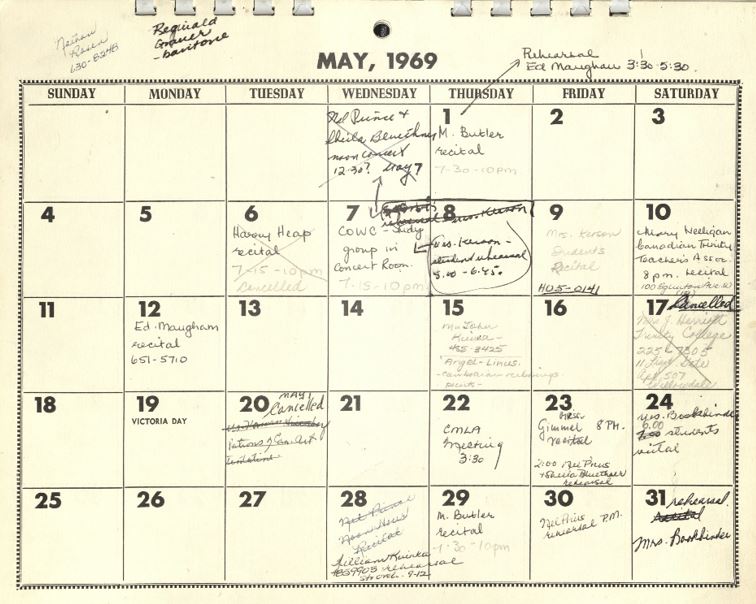 Nathan
Rosen
630-8248
Reginald
- baritone
MAY, 1969
Rehearsal
Ed Maughan 3:30-5:30
SUNDAY MONDAY TUESDAY WEDNESDAY THURSDAY FRIDAY SATURDAY
Nel Prince +
Sheila
noon concert
12.30? May 7
1
M. Butler
recital
7-30-10pm
2
3
4
5
6
Harvey Heap
recital
7-15-10pm
Cancelled
7
COWC - Study
group in
Concert Room.
7-15-10pm
8
Mrs. Kerson -
student rehearsal
5.00 - 6.45.
9
Mrs. Kerson
Students
Recital
HU5-0141
10
Canadian Trinity
Teacher's Assoc.
8 pm. recital
11
12
Ed. Maugham
recital
651-5710
13
14
15
Mr John
Kuinka-
435-3425
16
17 Cancelled
Trinity College
Apt 507
Willowdale
18
19
VICTORIA DAY
20 MAY
Cancelled
21
22
CMLA
Meeting
3:30
23 Mrs.
Gimmel 8 PM.
recital
rehearsal
24
Mrs. Bookbinder
6.00
students
25
26
27
28
Noon Hour
Recital
William Kuinka
rehearsal
29
M. Butler
recital
7-30-10pm
30
rehearsal P.M.
31 rehearsal
recital
Mrs. Bookbinder